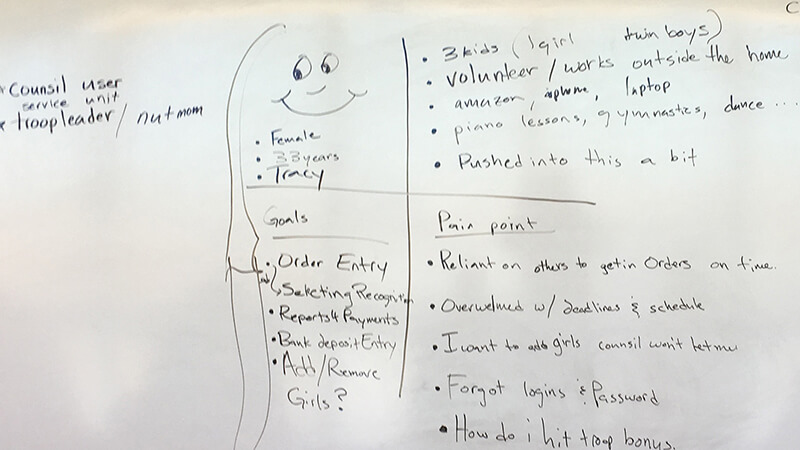 Counsil user
service unit
troopleader / nutmom
• Female
• 33 years
• Tracy
• 3 kids (1 girl twin boys)
• Volunteer / works outside the home
• amazon, iphone, laptop
• piano lessons, gymnastics, dance ...
• Pushed into this a bit
Goals
• Order Entry
Selecting Recognition
• Reports & Payments
• Bank deposit Entry
• Add/Remove
Girls?
Pain point
• Reliant on others to get in Orders on time.
• Overwelmed w/ deadlines & schedule
• I want to add girls counsil won't let me
• Forgot logins & Password
• How do i hit troop bonus.
C